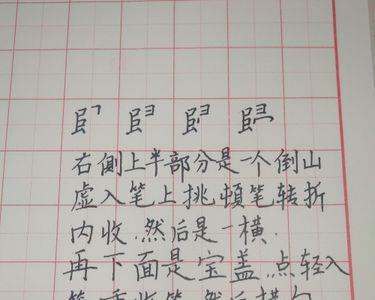 右側上半部分是一个倒山
虚入笔上挑頓笔转折
内收.然后是一横.
再下面是宝盖.点轻入